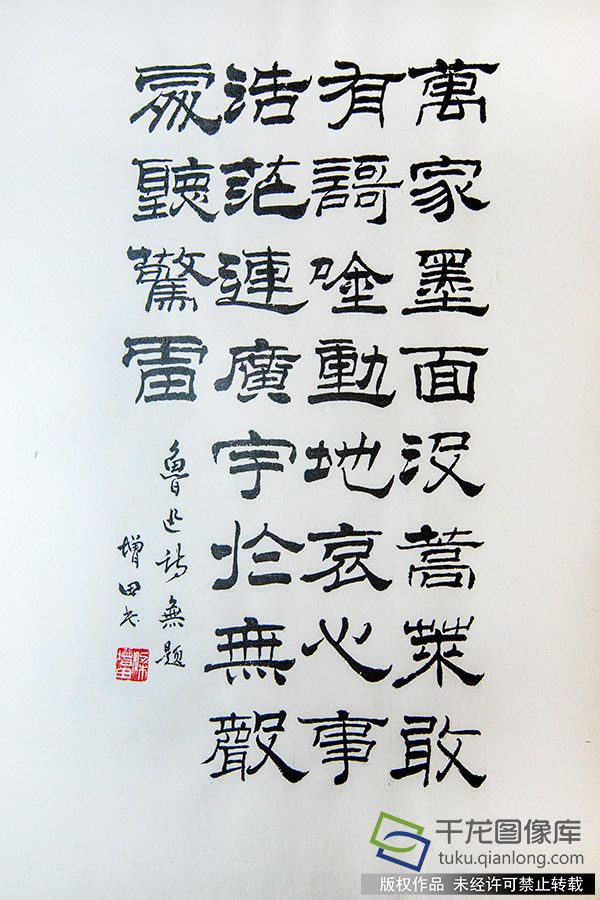 萬家墨面没蒿萊敢
有謌唫動地哀心事
浩茫連廣宇於無聲
處聽驚雷
魯迅诗無题
增田书
千龙图像库
tuku.qianlong.com
版权作品 未经许可禁止转载